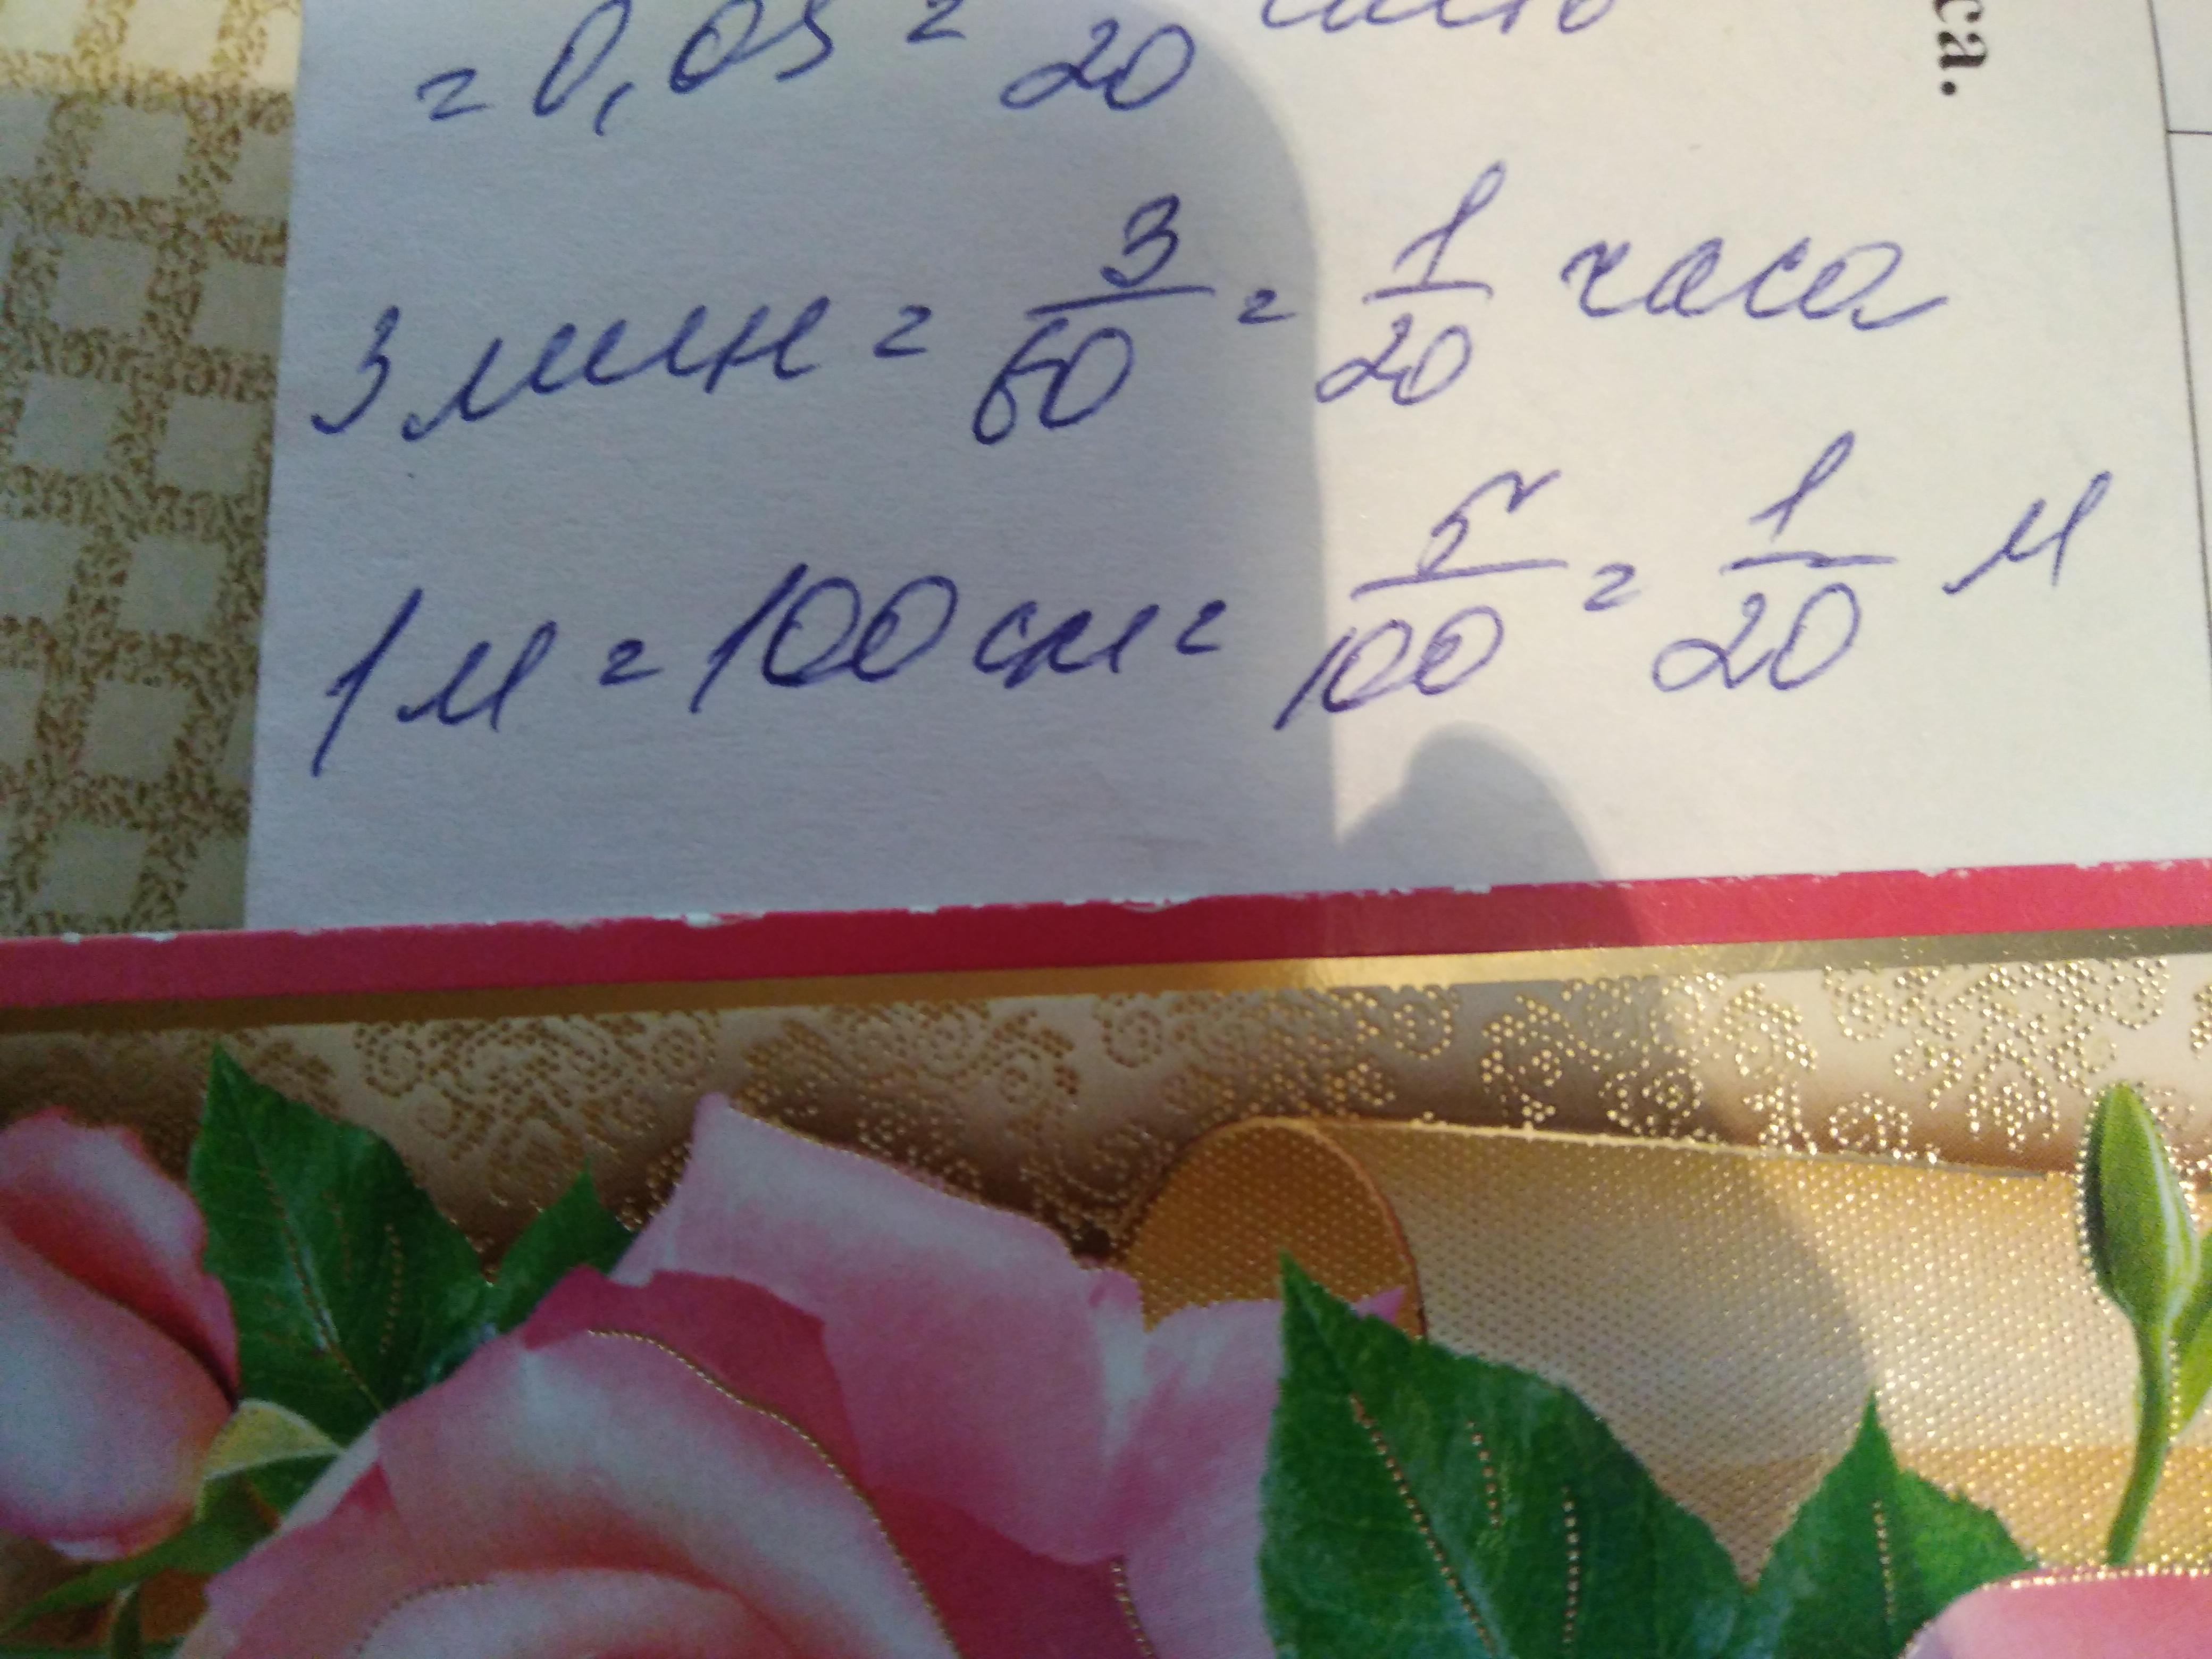 = 0,05 = /20 часть
са.
3 мин = 3/60 = 1/20 часа
1 м = 100 см = 5/100 = 1/20 м